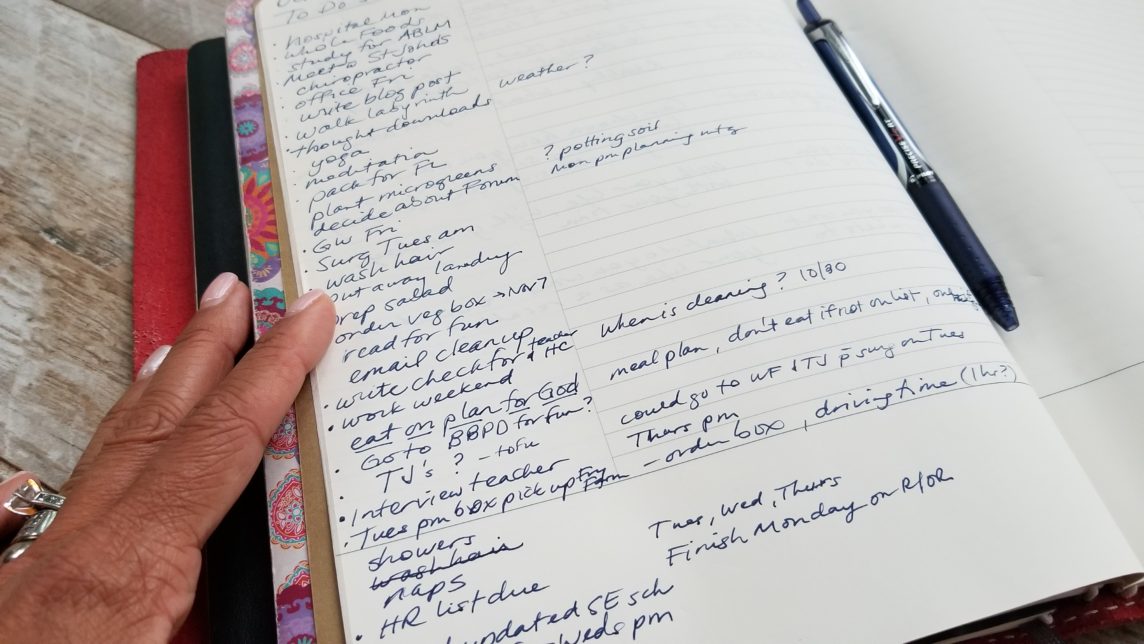 To Do
• hospital Mon
whole Foods
study for ABLM
• Meet @ St Johns
chiropractor
• office Fri
write blog post
• walk labyrinth
• thought downloads weather?
yoga
• meditation
• pack for FL
plant microgreens ? potting soil
decide about Forum Mon pm planning mtg
• GW Fri
• Surg Tues am
• wash hair
put away laundry
prep salad
order veg box → Nov 7
read for fun
email clean up when is cleaning? 10/30
• write check for teacher & HC
• work weekend
eat on plan for God meal plan, don't eat if not on list,
• Go to BBPD for fun?
TJ's? - tofu could go to WF & TJ p̄ surg on Tues
• Interview teacher Thurs pm
• Tues pm box pick up Fry Farm - order box, driving time (1 hr?)
showers
wash hair Tues, Wed, Thurs
naps Finish Monday on R/OR
• HR list due
updated SE sch
Weds pm